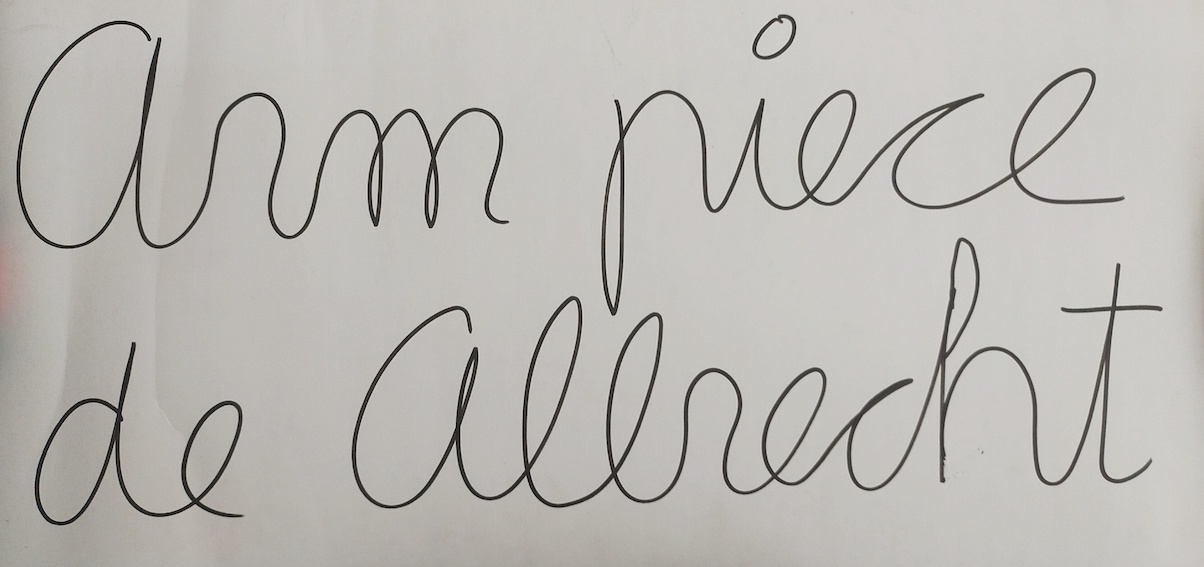 Arm piece
de Albrecht